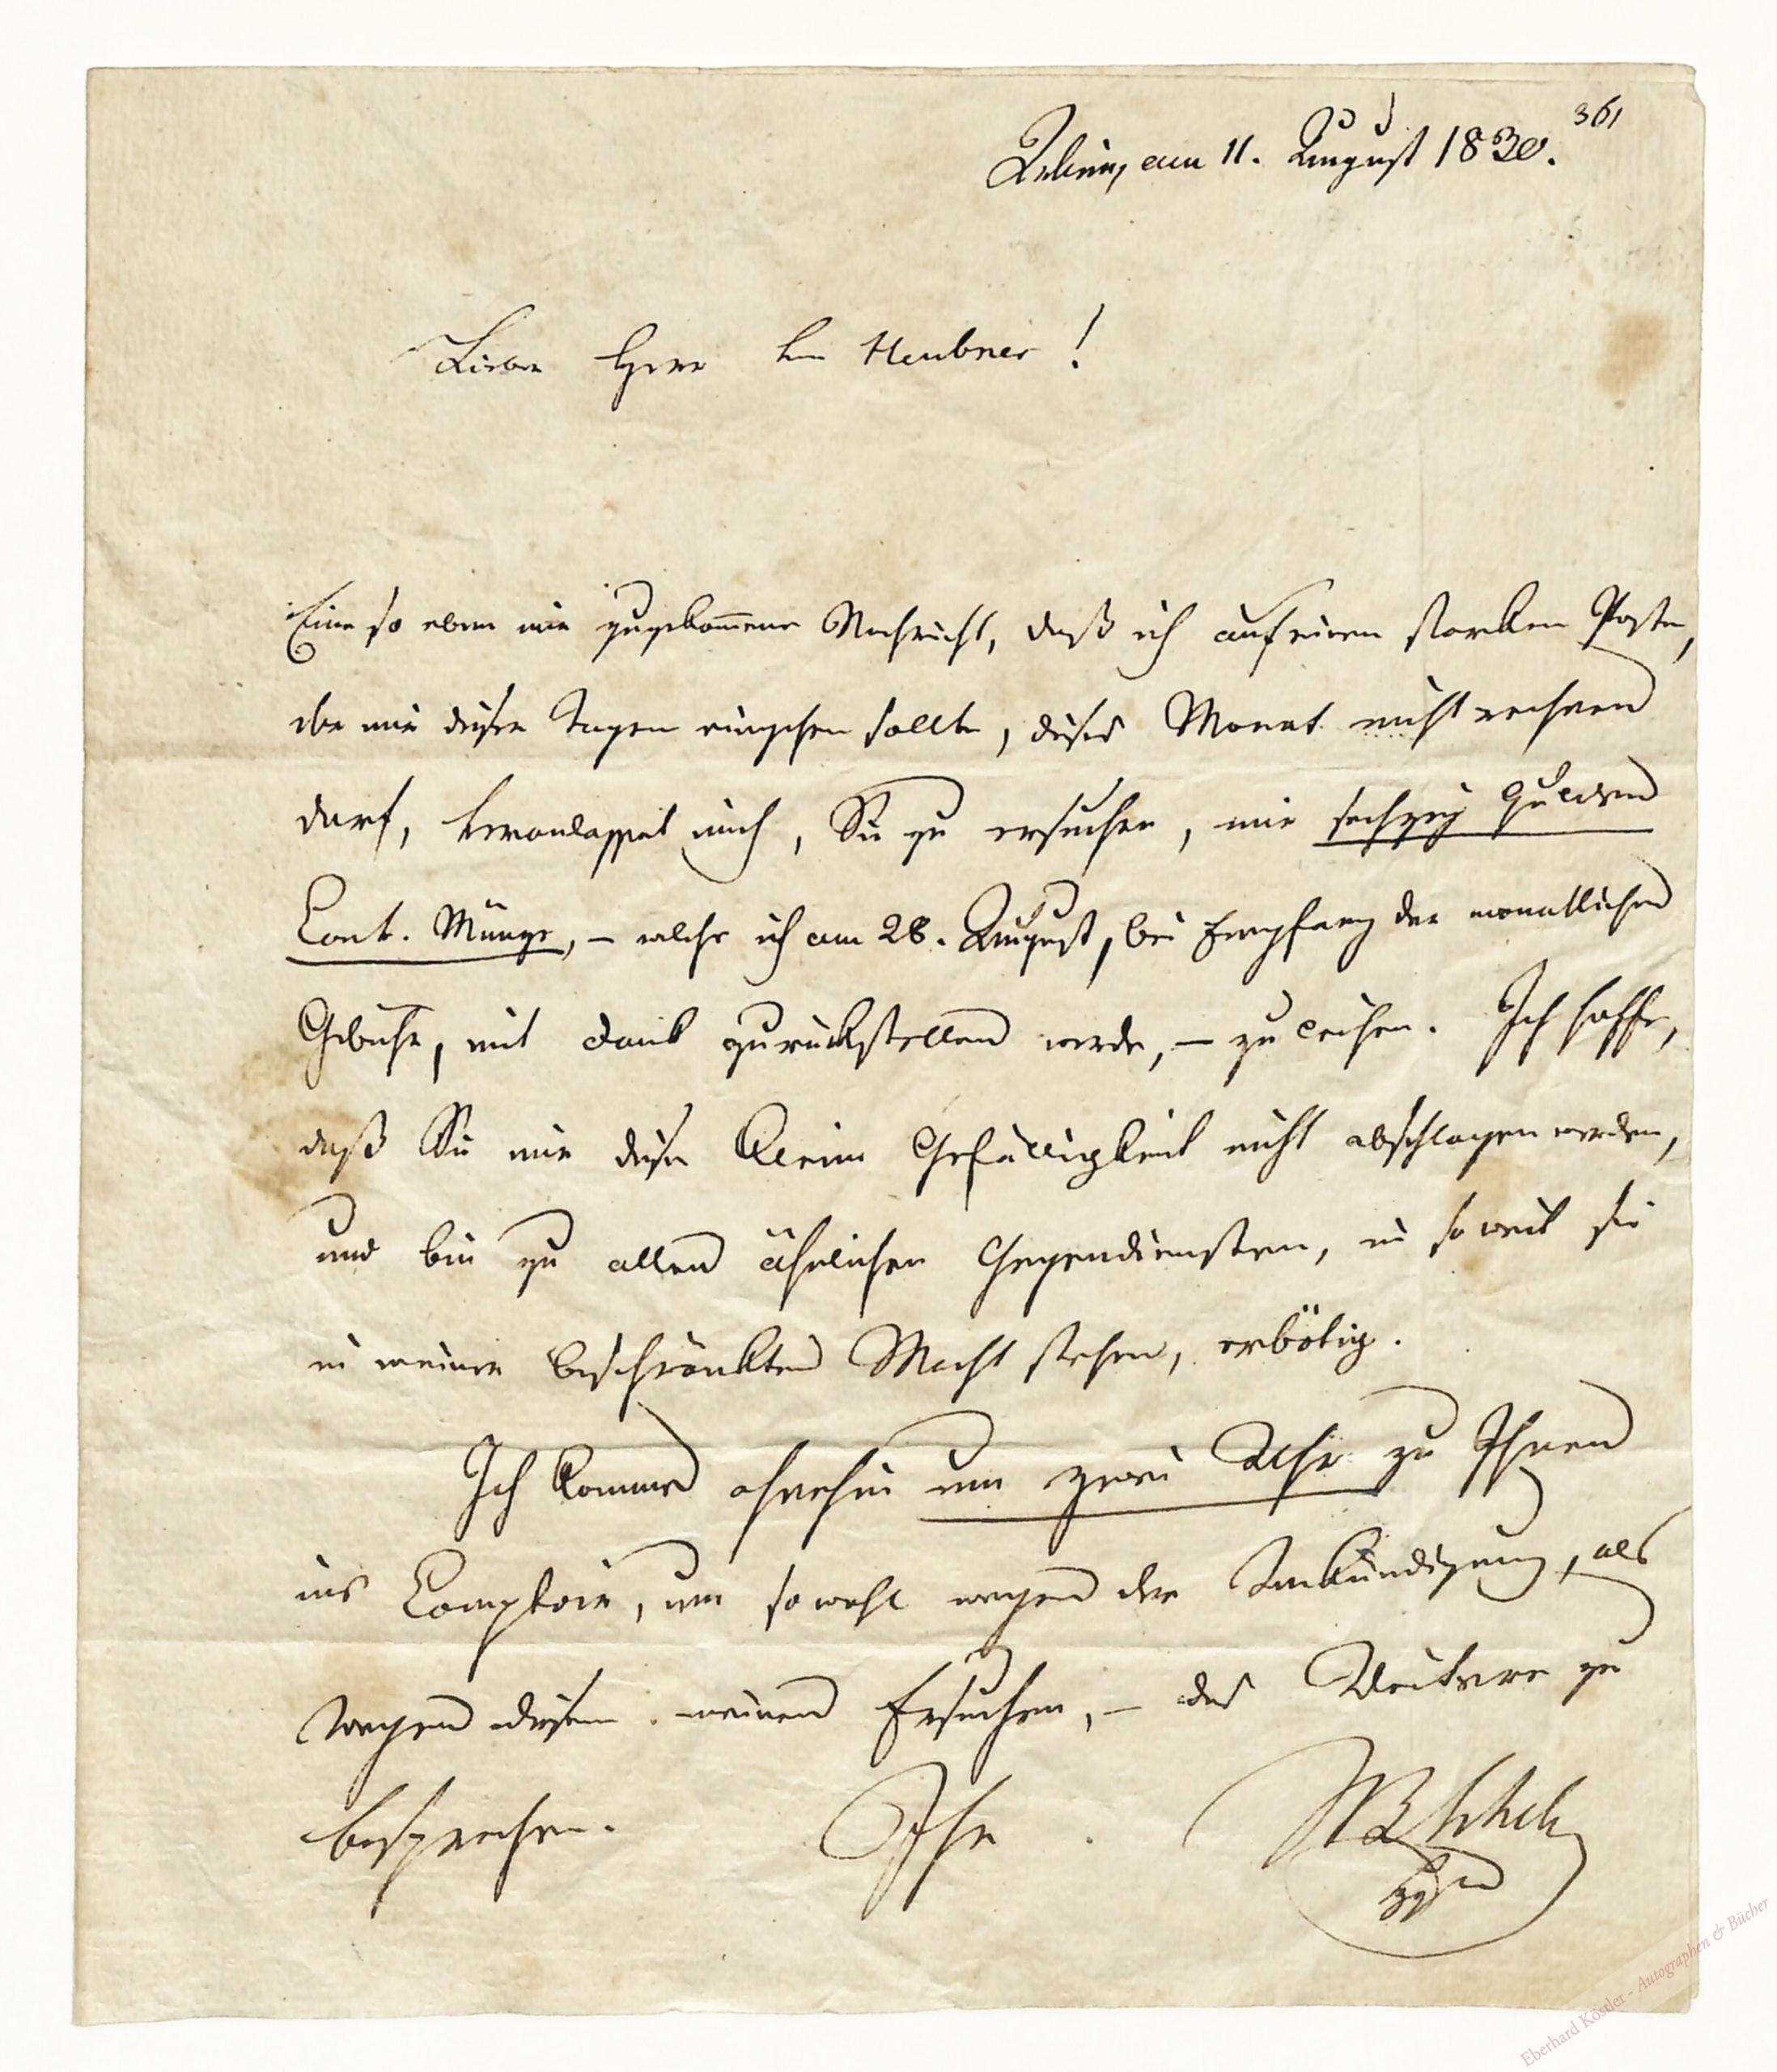 361
Wien, am 11. August 1830.
Lieber Herr von Heubner!
Eine so eben mir zugekom̅ene Nachricht, daß ich auf einen starken Posten,
der mir dieser Tagen eingehen sollte, dieses Monat nicht rechnen
darf, veranlasset mich, Sie zu ersuchen, mir sechzig Gulden
Conv. Münze, – welche ich am 28. August, bei Empfang der monatlichen
Gebühr, mit Dank zurückstellen werde, – zu leihen. Ich hoffe,
daß Sie mir diese kleine Gefälligkeit nicht abschlagen werden,
und bin zu allen ähnlichen Gegendiensten, in soweit sie
in meiner beschränkten Macht stehen, erbötig.
Ich komme ohnehin um zwei Uhr zu Ihnen
ins Comptoir, um sowohl wegen der Ankündigung, als
wegen diesem meinen Ersuchen, – das Weitere zu
besprechen. Ihr
Eberhard Köstler - Autographen & Bücher